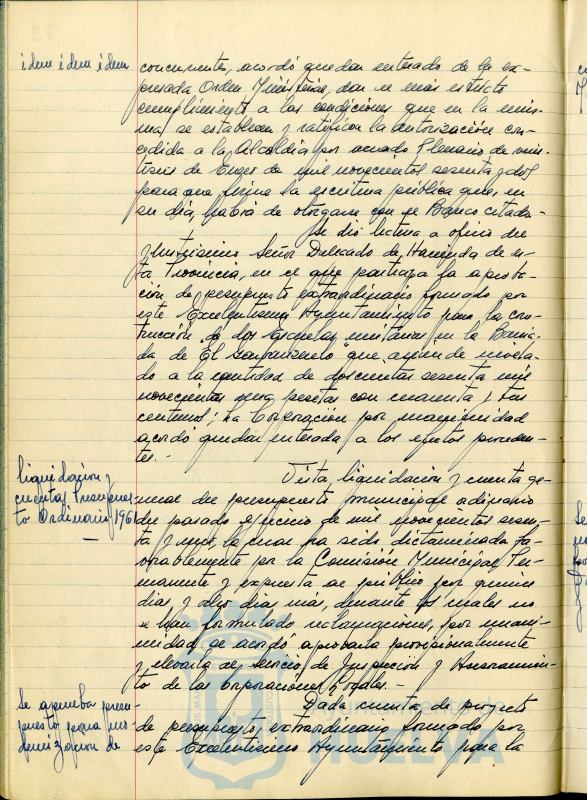 idem idem idem
concurrente, acordó quedar enterado de la ex-
presada Orden Ministerial, dar el más estricto
cumplimiento a las condiciones que en la mis-
ma se establecen y ratificar la autorización con-
cedida a la Alcaldía por acuerdo Plenario de
de Enero de mil novecientos sesenta y dos
para que firme la escritura pública que, en
su día, habrá de otorgarse con el Banco citado.-
Se dió lectura a oficio del
Ilustrísimo Señor Delegado de Hacienda de es-
ta Provincia, en el que participa la aproba-
ción del presupuesto extraordinario formado por
este Excelentísimo Ayuntamiento para la cons-
trucción de dos Escuelas unitarias en la Barria-
da de El que asciende nivela-
do a la cantidad de doscientas sesenta mil
novecientas una pesetas con cuarenta y tres
centimos; la Corporación por unanimidad
acordó quedar enterada a los efectos proceden-
tes.-
liquidación y
cuentas Presupues-
to Ordinario 1961
Vista, liquidación y cuenta ge-
neral del presupuesto municipal ordinario
del pasado ejercicio de mil novecientos sesen-
ta y uno, la cual ha sido dictaminada fa-
vorablemente por la Comisión Municipal Per-
manente y expuesta al público por quince
dias y ocho dias más, durante los cuales no
se han formulado reclamaciones, por unani-
midad se acordó aprobarla provisionalmente
y elevarla al Servicio de Inspección y Asesoramien-
to de las Corporaciones Locales.-
Se aprueba presu-
puesto para mo-
dernización de
Dada cuenta del proyecto
de presupuesto extraordinario formado por
este Excelentísimo Ayuntamiento para la
Ayuntamiento de
HUELVA